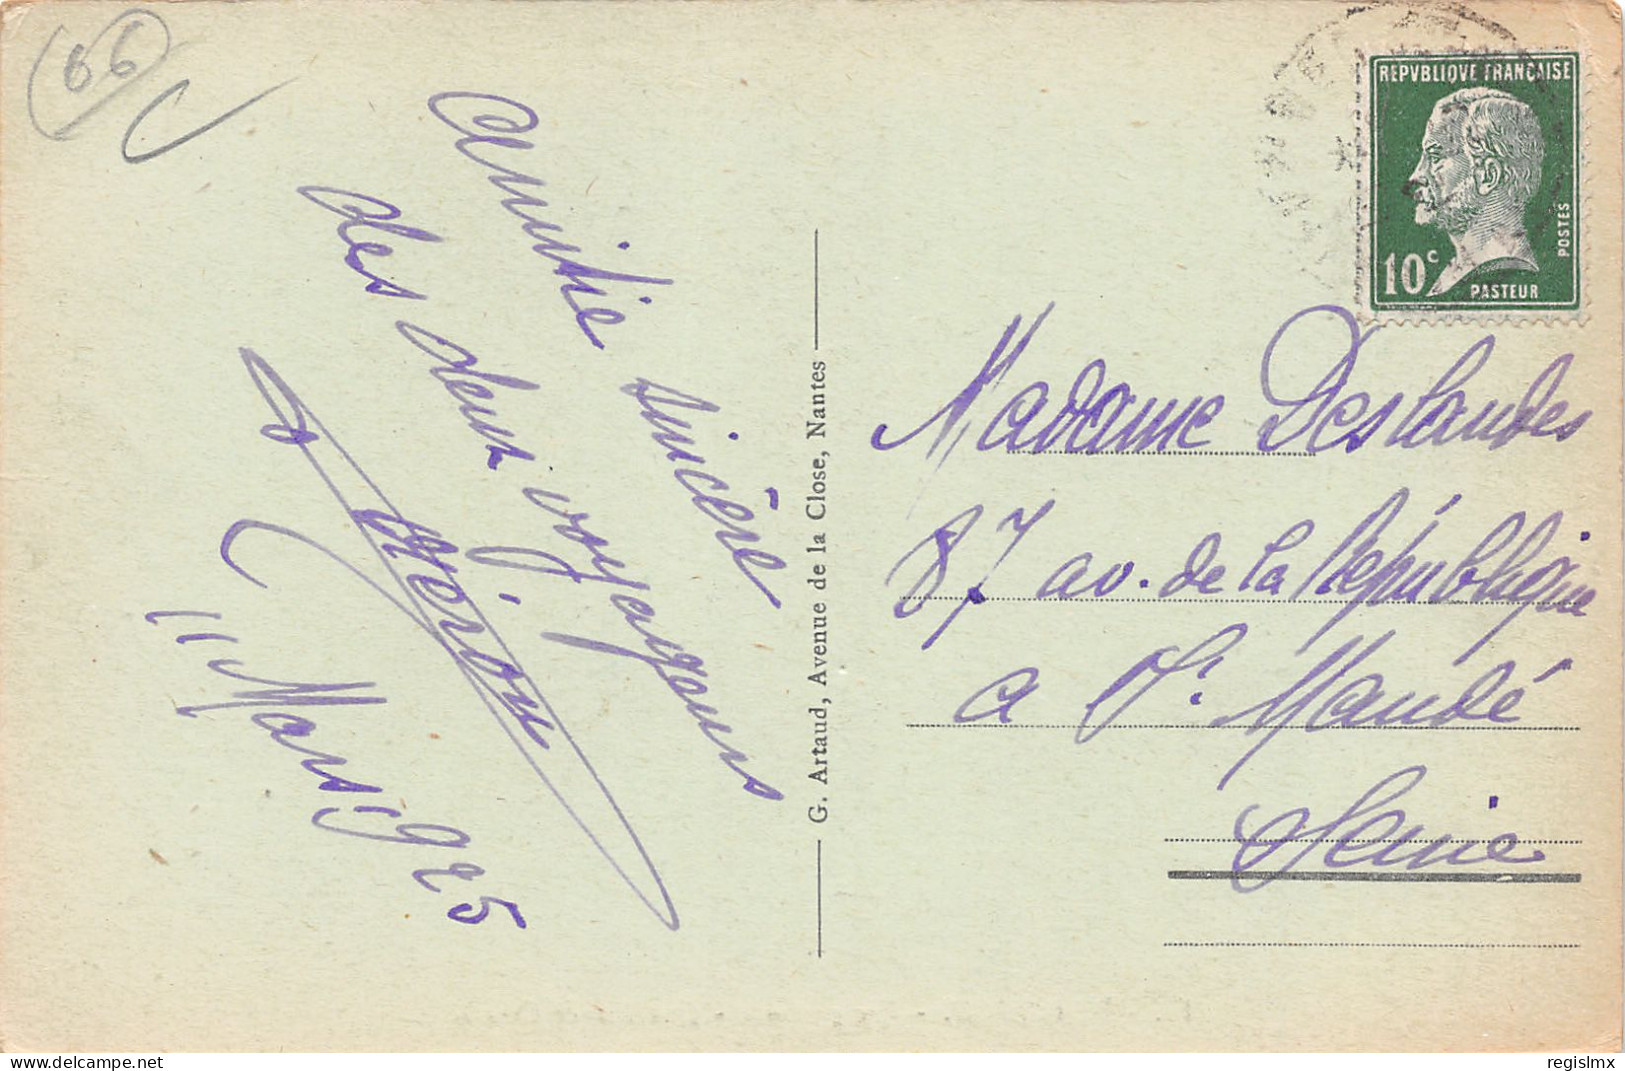 66
Amitié sincère
des deux voyageurs
11 Mars 1925
G. Artaud, Avenue de la Close, Nantes
REPVBLIQVE FRANCAISE
POSTES
10c
PASTEUR
Madame Deslandes
87 av. de la République
a St. Mandé
Seine
regislmx